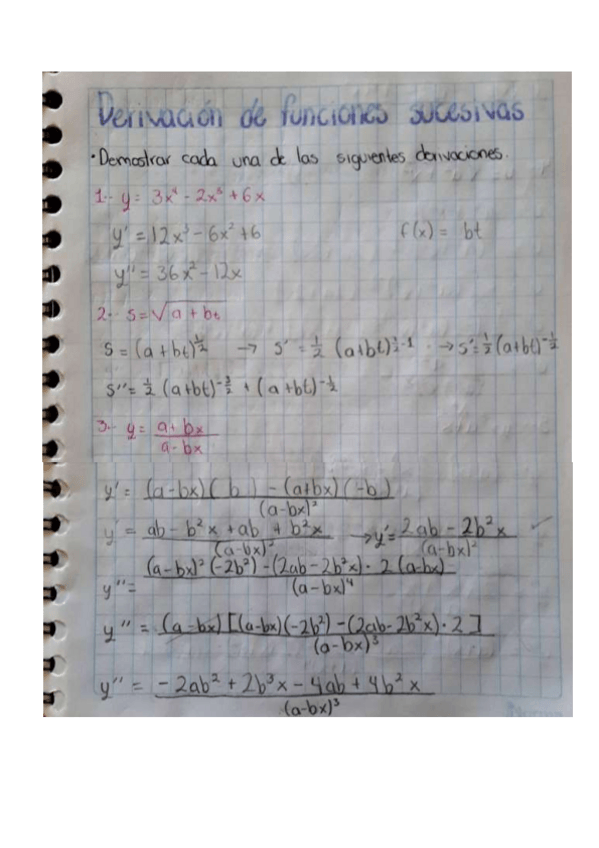 Derivación de funciones sucesivas
•Demostrar cada una de las siguientes derivaciones.
1.- y = 3x⁴ - 2x³ + 6x
y' = 12x³ - 6x² + 6
f(x) = bt
y'' = 36x² - 12x
2.- s = √a + bt
s = (a + bt)^½ → s' = ½ (a+bt)^½-1 → s' = ½(a+bt)^-½
s'' = ½ (a+bt)^-3/2 + (a+bt)^-½
3.- y = a+bx / a-bx
y' = (a-bx)(b) - (a+bx)(-b) / (a-bx)²
y' = ab - b²x + ab + b²x / (a-bx)² → y' = 2ab - 2b²x / (a-bx)²
y'' = (a-bx)² (-2b²) - (2ab-2b²x) · 2 (a-bx) / (a-bx)⁴
y'' = (a-bx) [(a-bx)(-2b²) - (2ab-2b²x) · 2] / (a-bx)³
y'' = -2ab² + 2b³x - 4ab + 4b²x / (a-bx)³